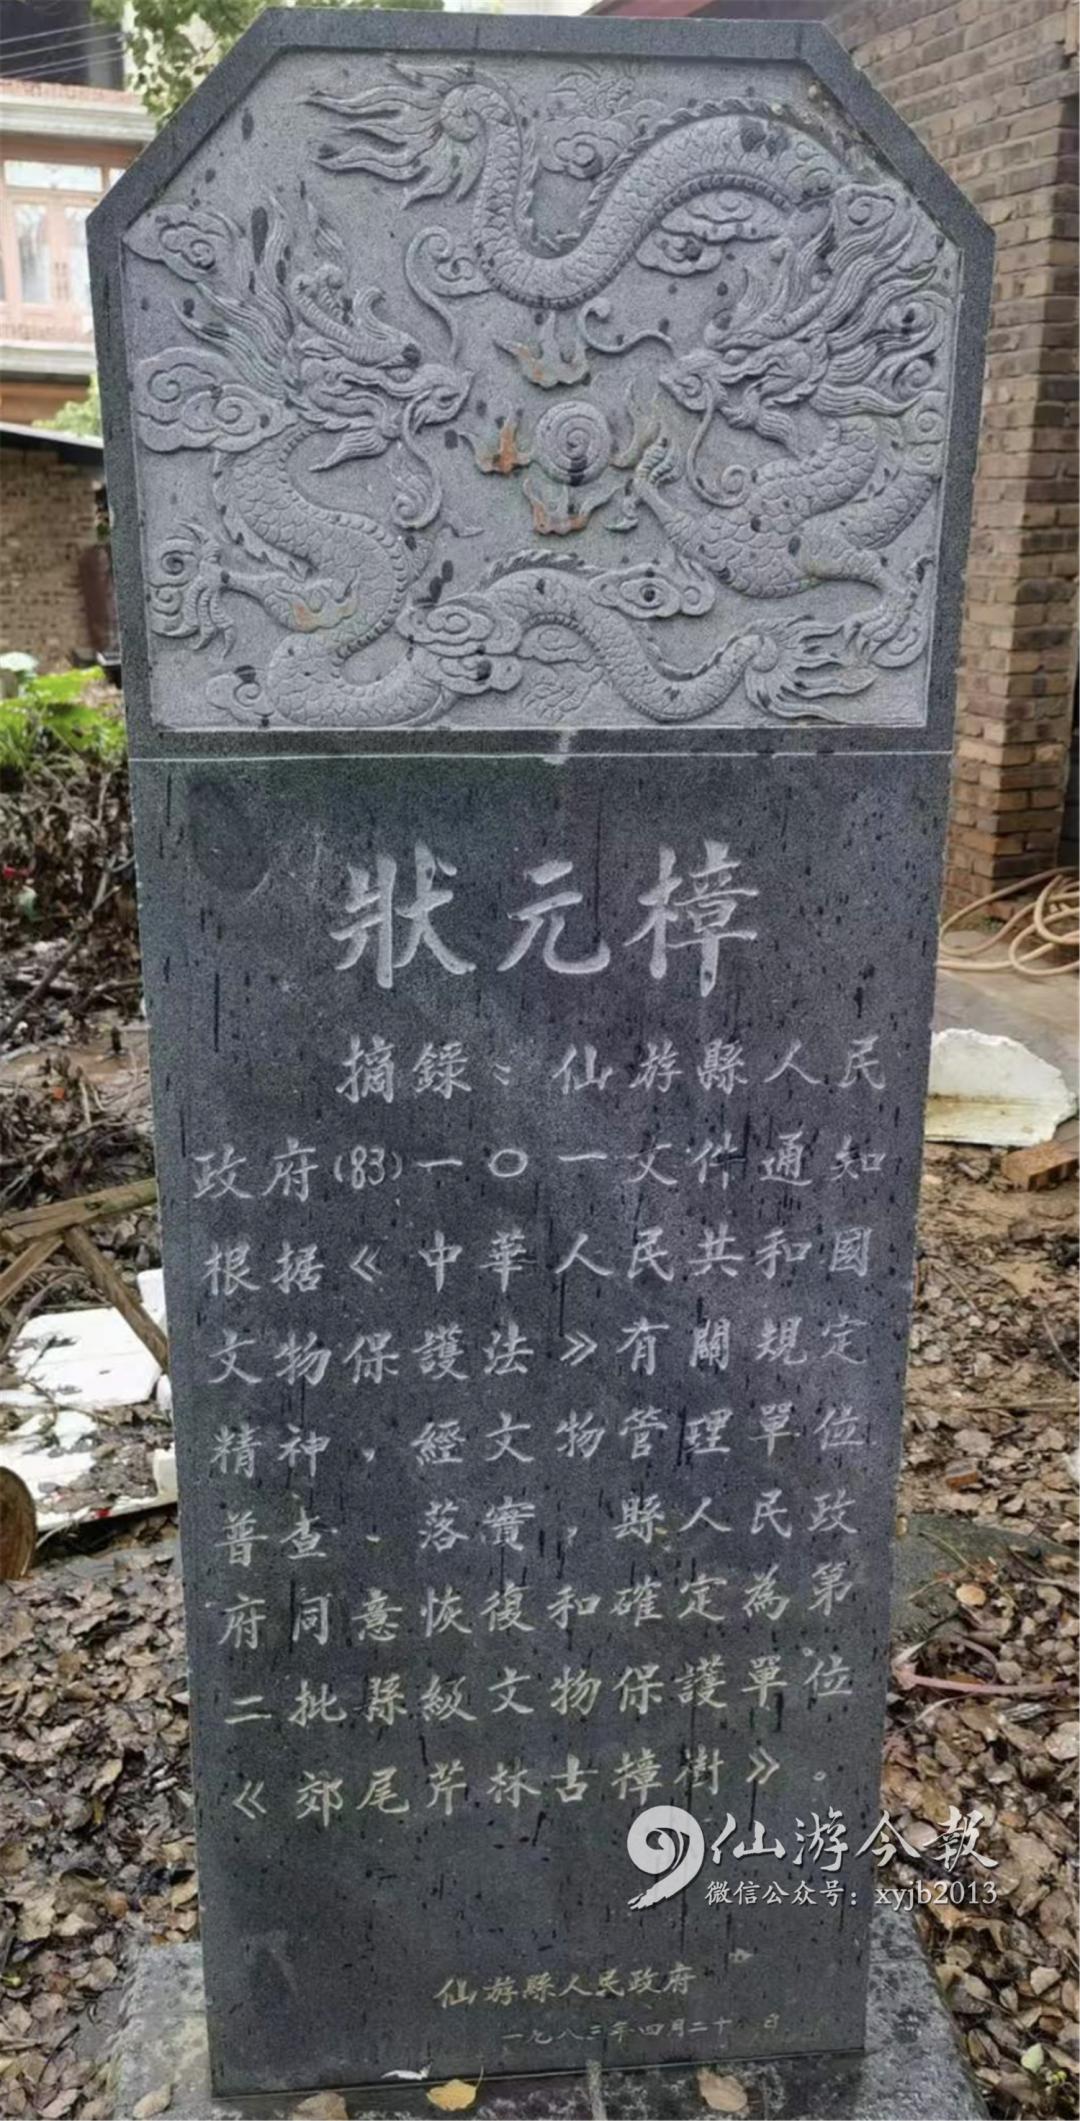 狀元樟
摘錄：仙游縣人民
政府(83)一〇一文件通知
根据《中華人民共和國
文物保護法》有關規定
精神，經文物管理單位
普查、落實，縣人民政
府同意恢復和確定為第
二批縣級文物保護單位
《郊尾芹林古樟樹》。
仙游今報
微信公众号：xyjb2013
仙游縣人民政府
一九八三年四月二十日